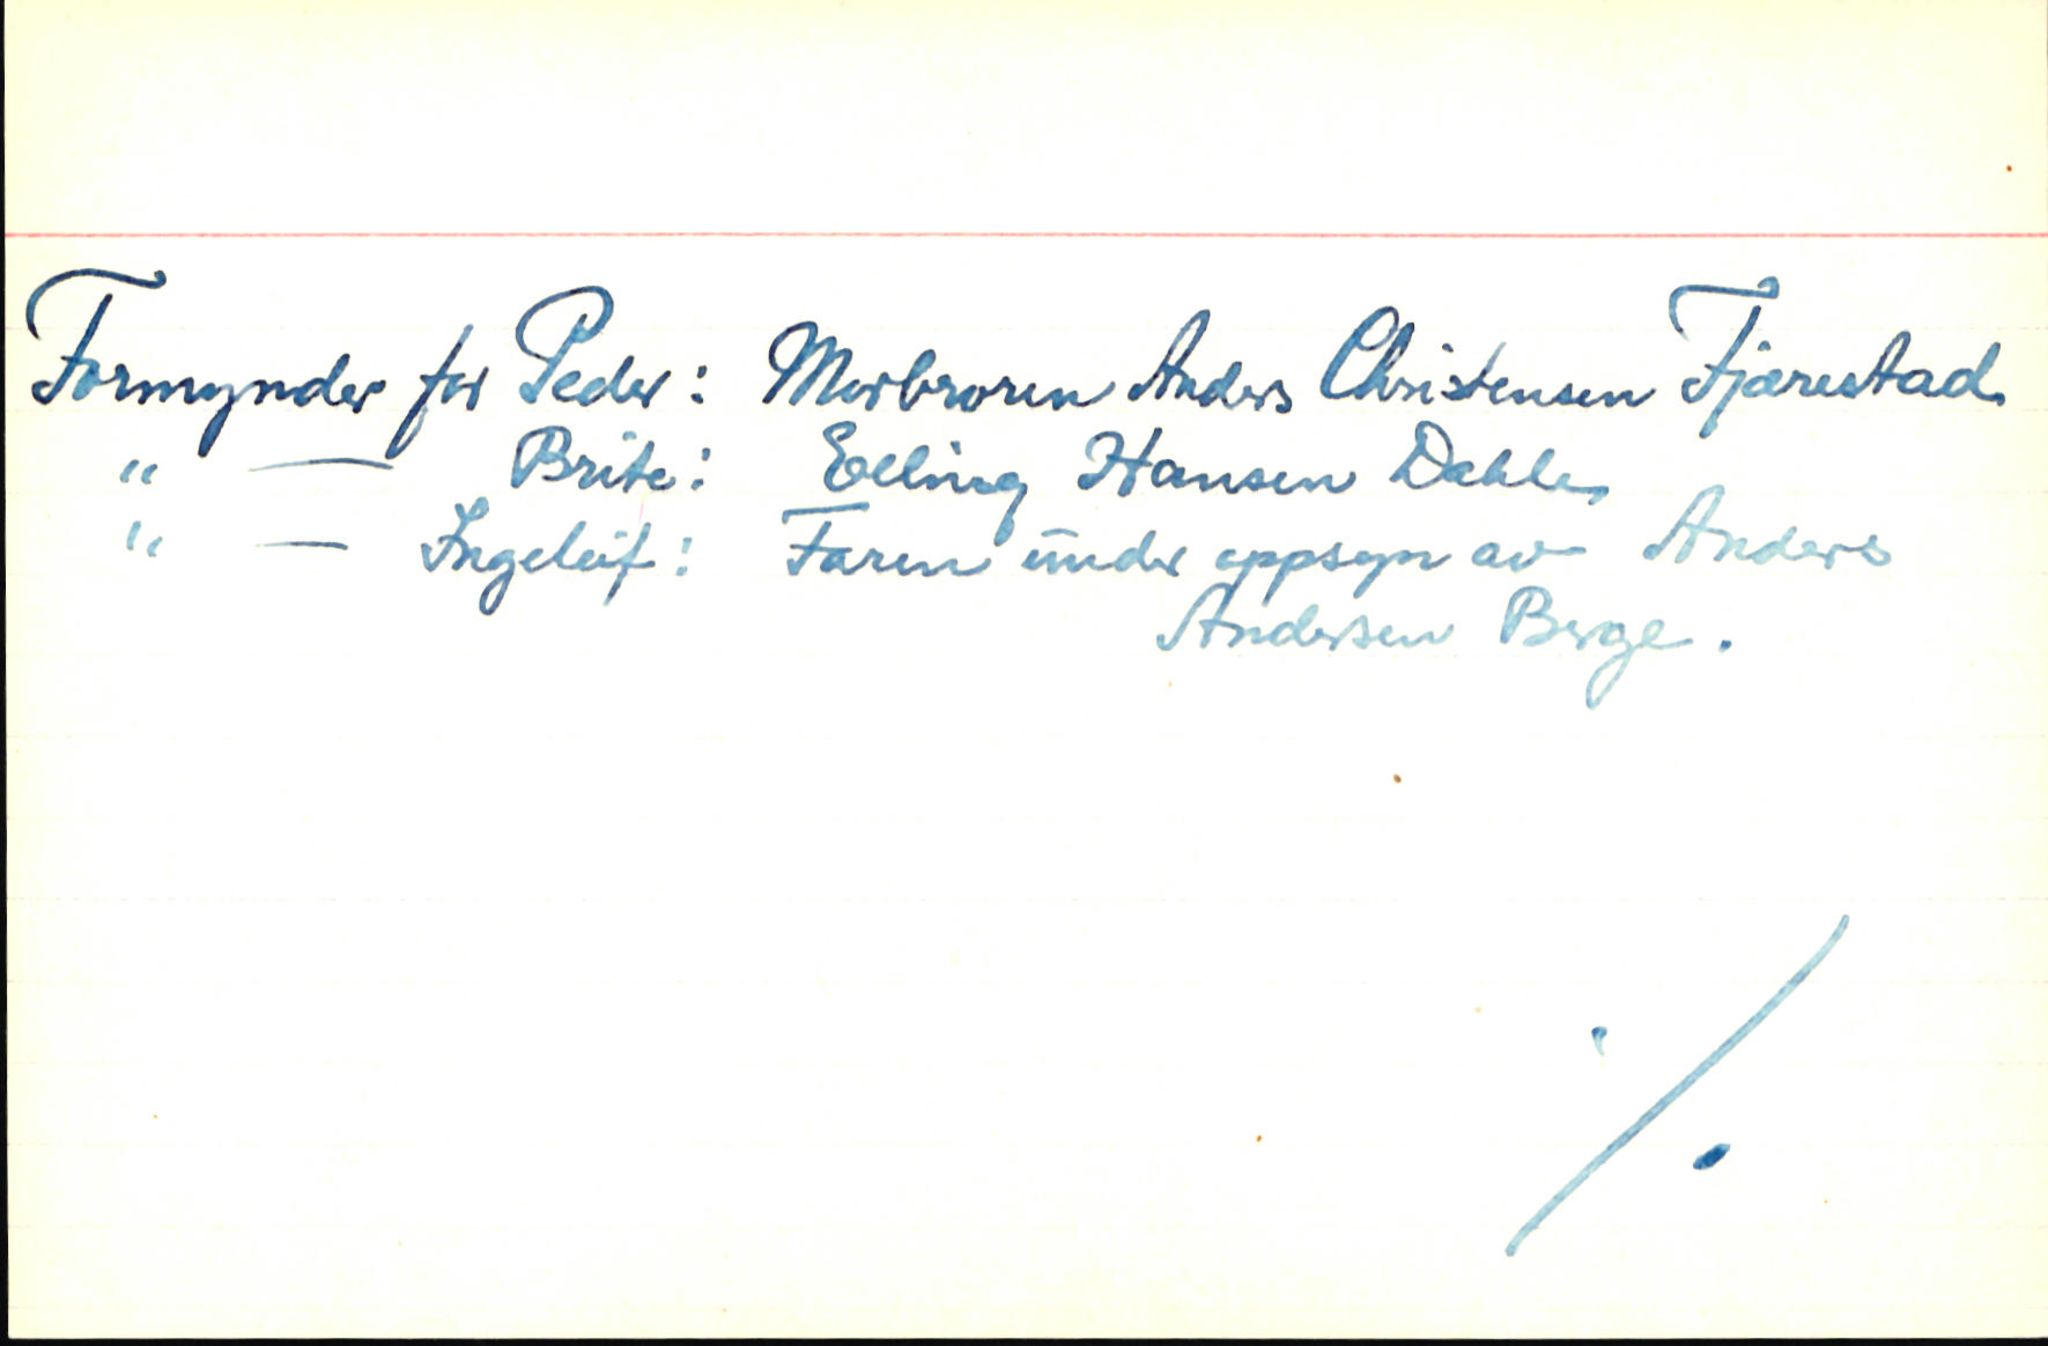 Formynder for Peder: Morbroren Anders Christensen Fjærestad.
" — Brite: Elling Hansen Dahle,
" — Ingeleif: Faren under oppsyn av Anders
Andersen Berge.
./.